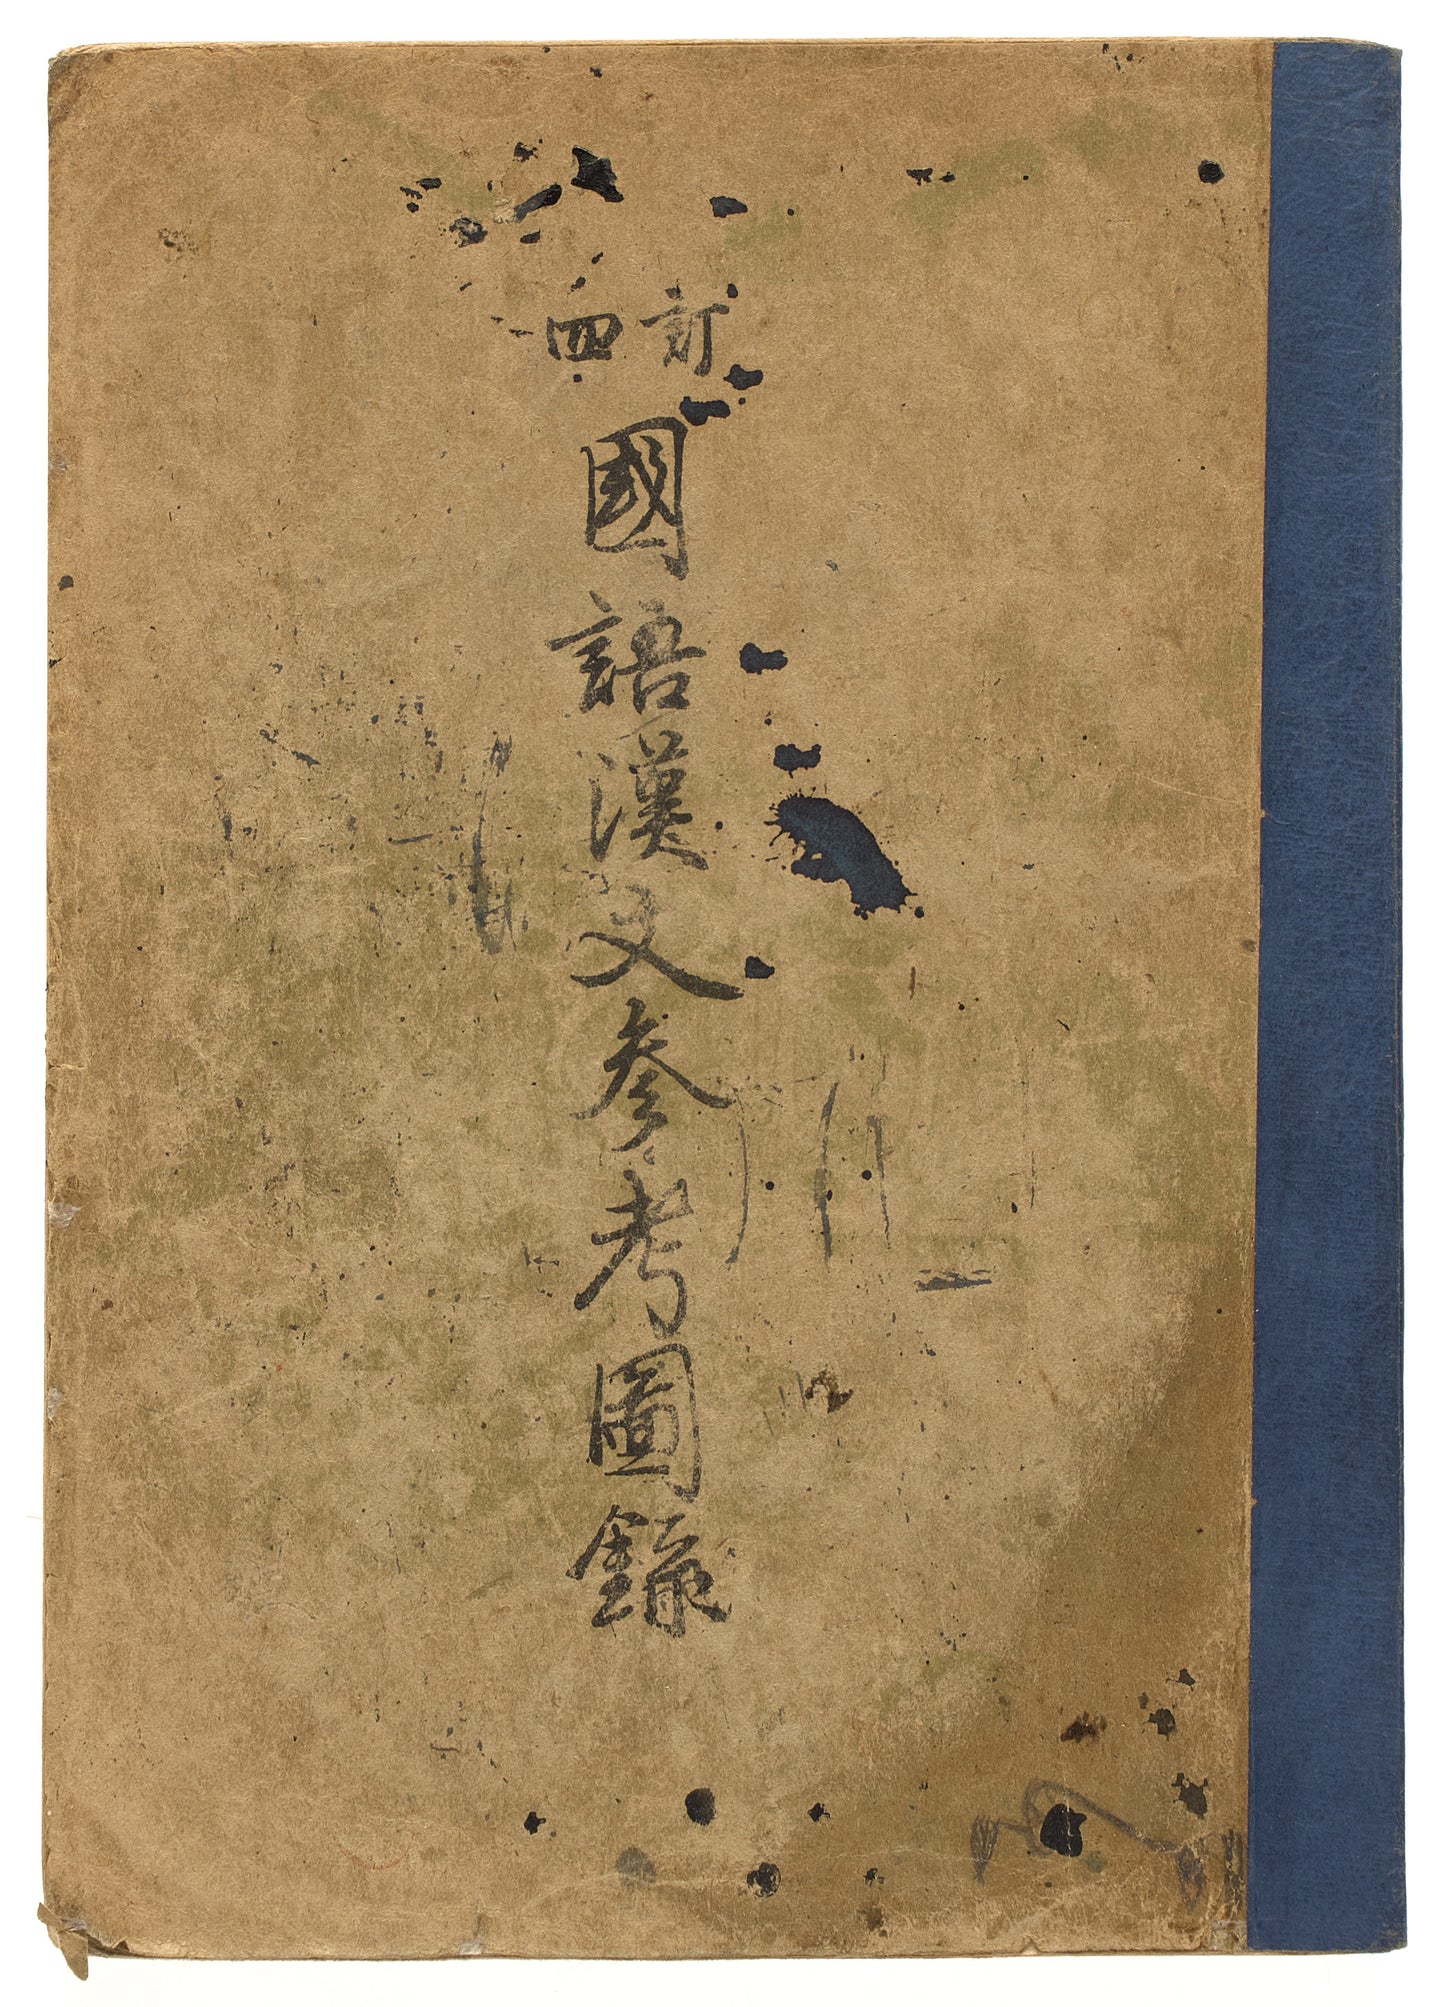 訂四
國語漢文参考圖錄